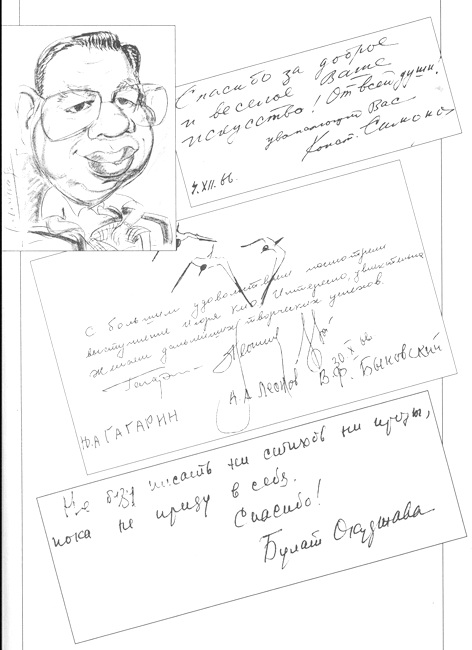 Спасибо за доброе
и веселое Ваше
искусство! От всей души!
уважающий Вас
Конст. Симонов
7.XII.66.
С большим удовольствием посмотрели
выступление Игоря Кио. Интересно, увлекательно
Желаем дальнейших творческих успехов.
Гагарин Леонов
20 X 66
Ю.А ГАГАРИН А.А Леонов В.Ф. Быковский
Не буду писать ни стихов ни прозы,
пока не приду в себя.
Спасибо!
Булат Окуджава